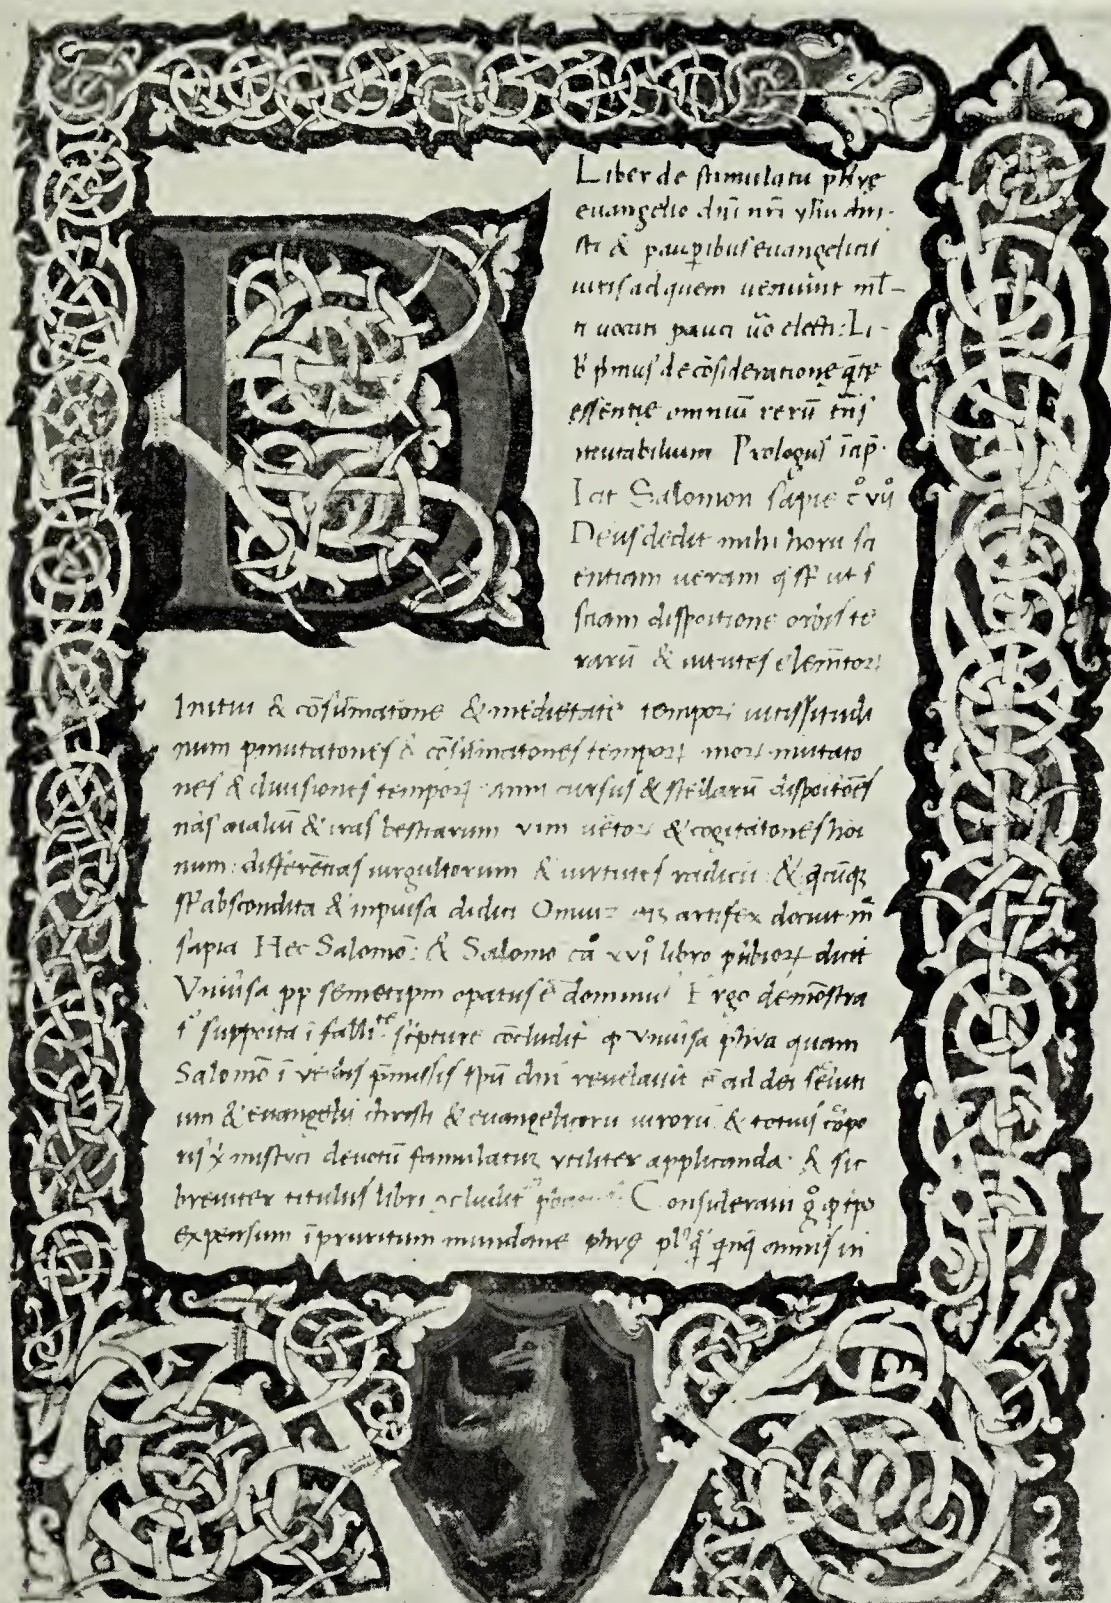 Liber de stimulatu phīe
euangelio dnī nrī yhu chri-
sti & paupibus euangelicis
uiris ad quem ueniunt ml̄-
ti uocati pauci u̅o electi: Li-
b' p̄mus de cōsideratione q̄te
essentie omniū rerū tn̄s
mutabilium Prologus īcip̄.
Icit Salomon sapie
Deus dedit mihi horū sci
entiam ueram ut s
ciam dispoitione orbis te
rarū & uirtutes elem̄torꝝ
Initiū & cōsūmatione & medietatē temporꝝ uicissitudi
num pmutationes & cōsūmationes temporꝝ morꝝ mutatio
nes & diuisiones temporꝝ anni cursus & stellarū dispoitōēs
nās aialiū & iras bestiarum vim uētorꝝ & cogitationes hoi
num: differētias uirgultorum & uirtutes radicū: & q̄cūqꝫ
st̄ abscondita & inpuisa didici Omniū artifex docuit m̄
sapia Hec Salomō: & Salomo xvi° libro pubiorꝝ dicit
Vniūsa pp semetipm opatus ē dominus Ergo demōstra
supposita ī falli scpture cōcludit ꝙ Vniūsa phīa quam
Salomō ī verbis p̄missis spū dnī reuelauit ē ad dei seruiti
um & euangelii christi & euangelicorū uirorū & totius corpo
ris mistici deuotū famulatū vtiliter applicanda & sic
breuiter titulus libri ꝯcludit Consideraui g° ꝙ tpo
expensum ī pruritum mundane phīe pl' annis in